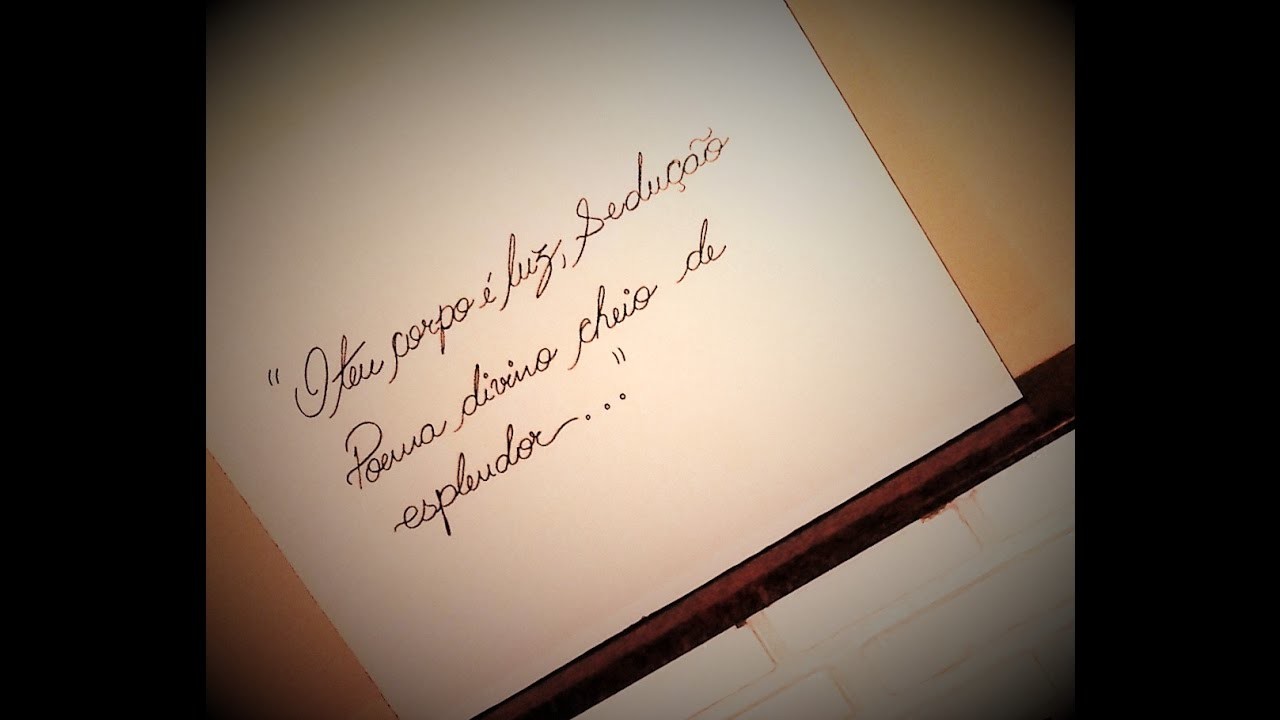 "O teu corpo é luz, Sedução
Poema divino cheio de
esplendor..."